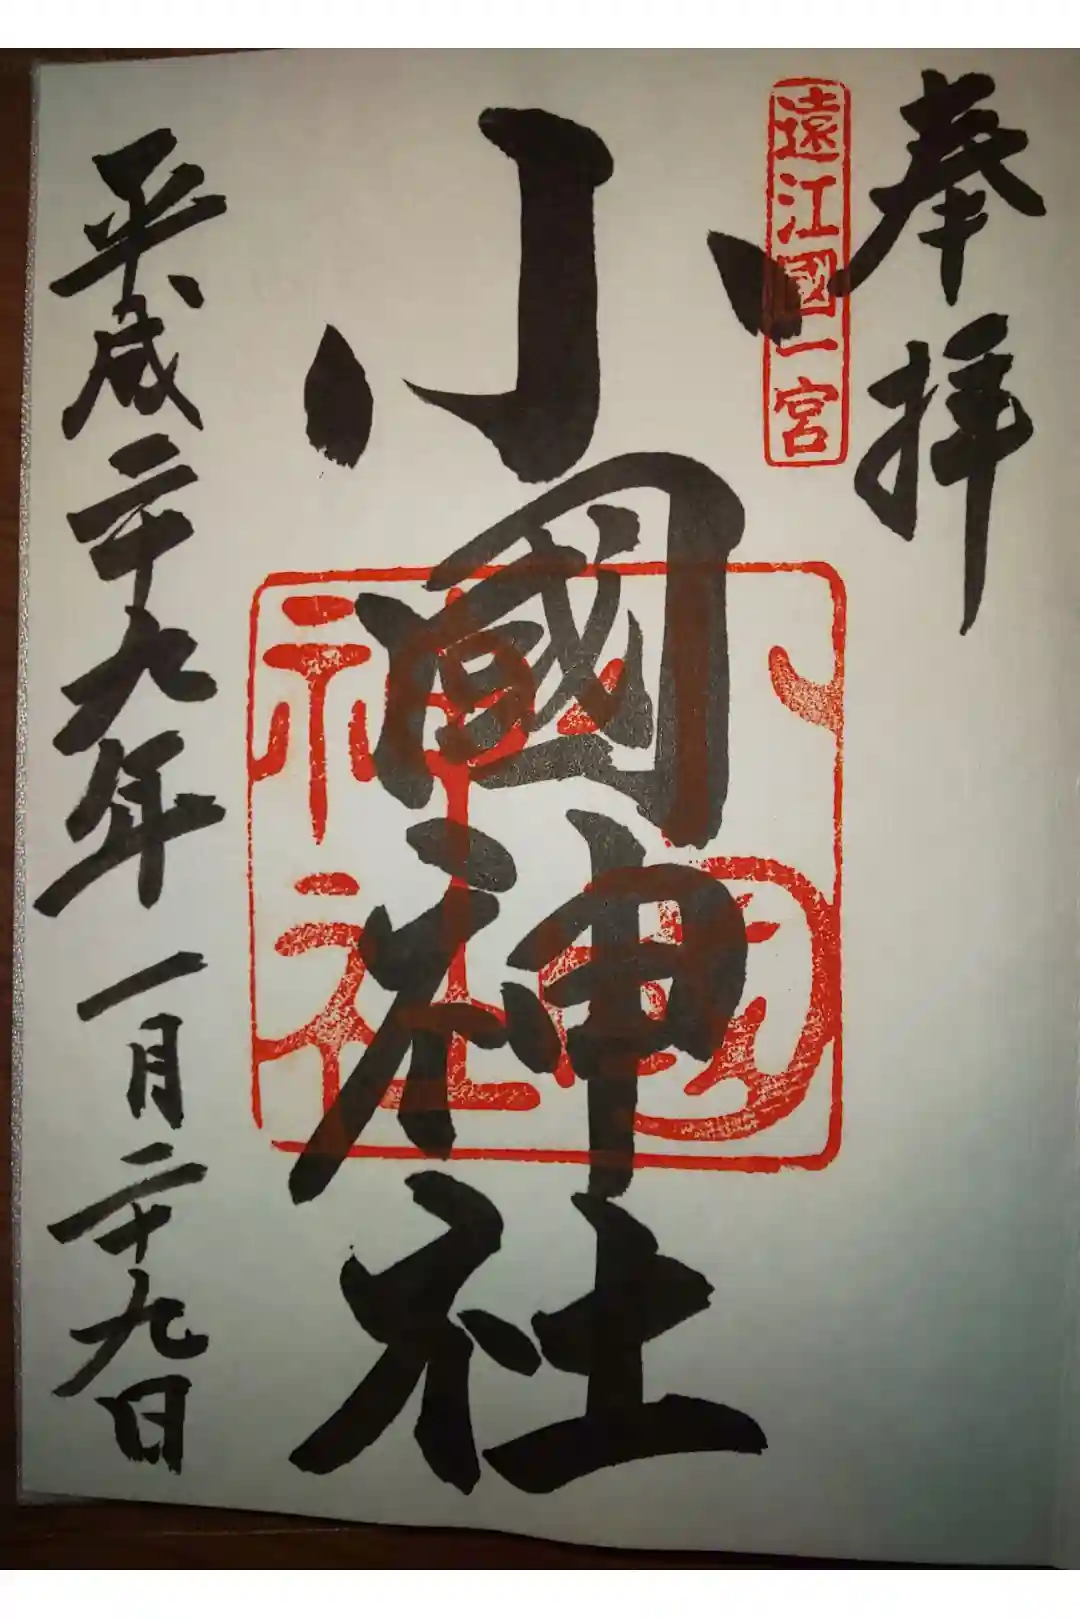 奉拝
遠江國一宮
小國神社
小國神社
平成二十九年一月二十九日